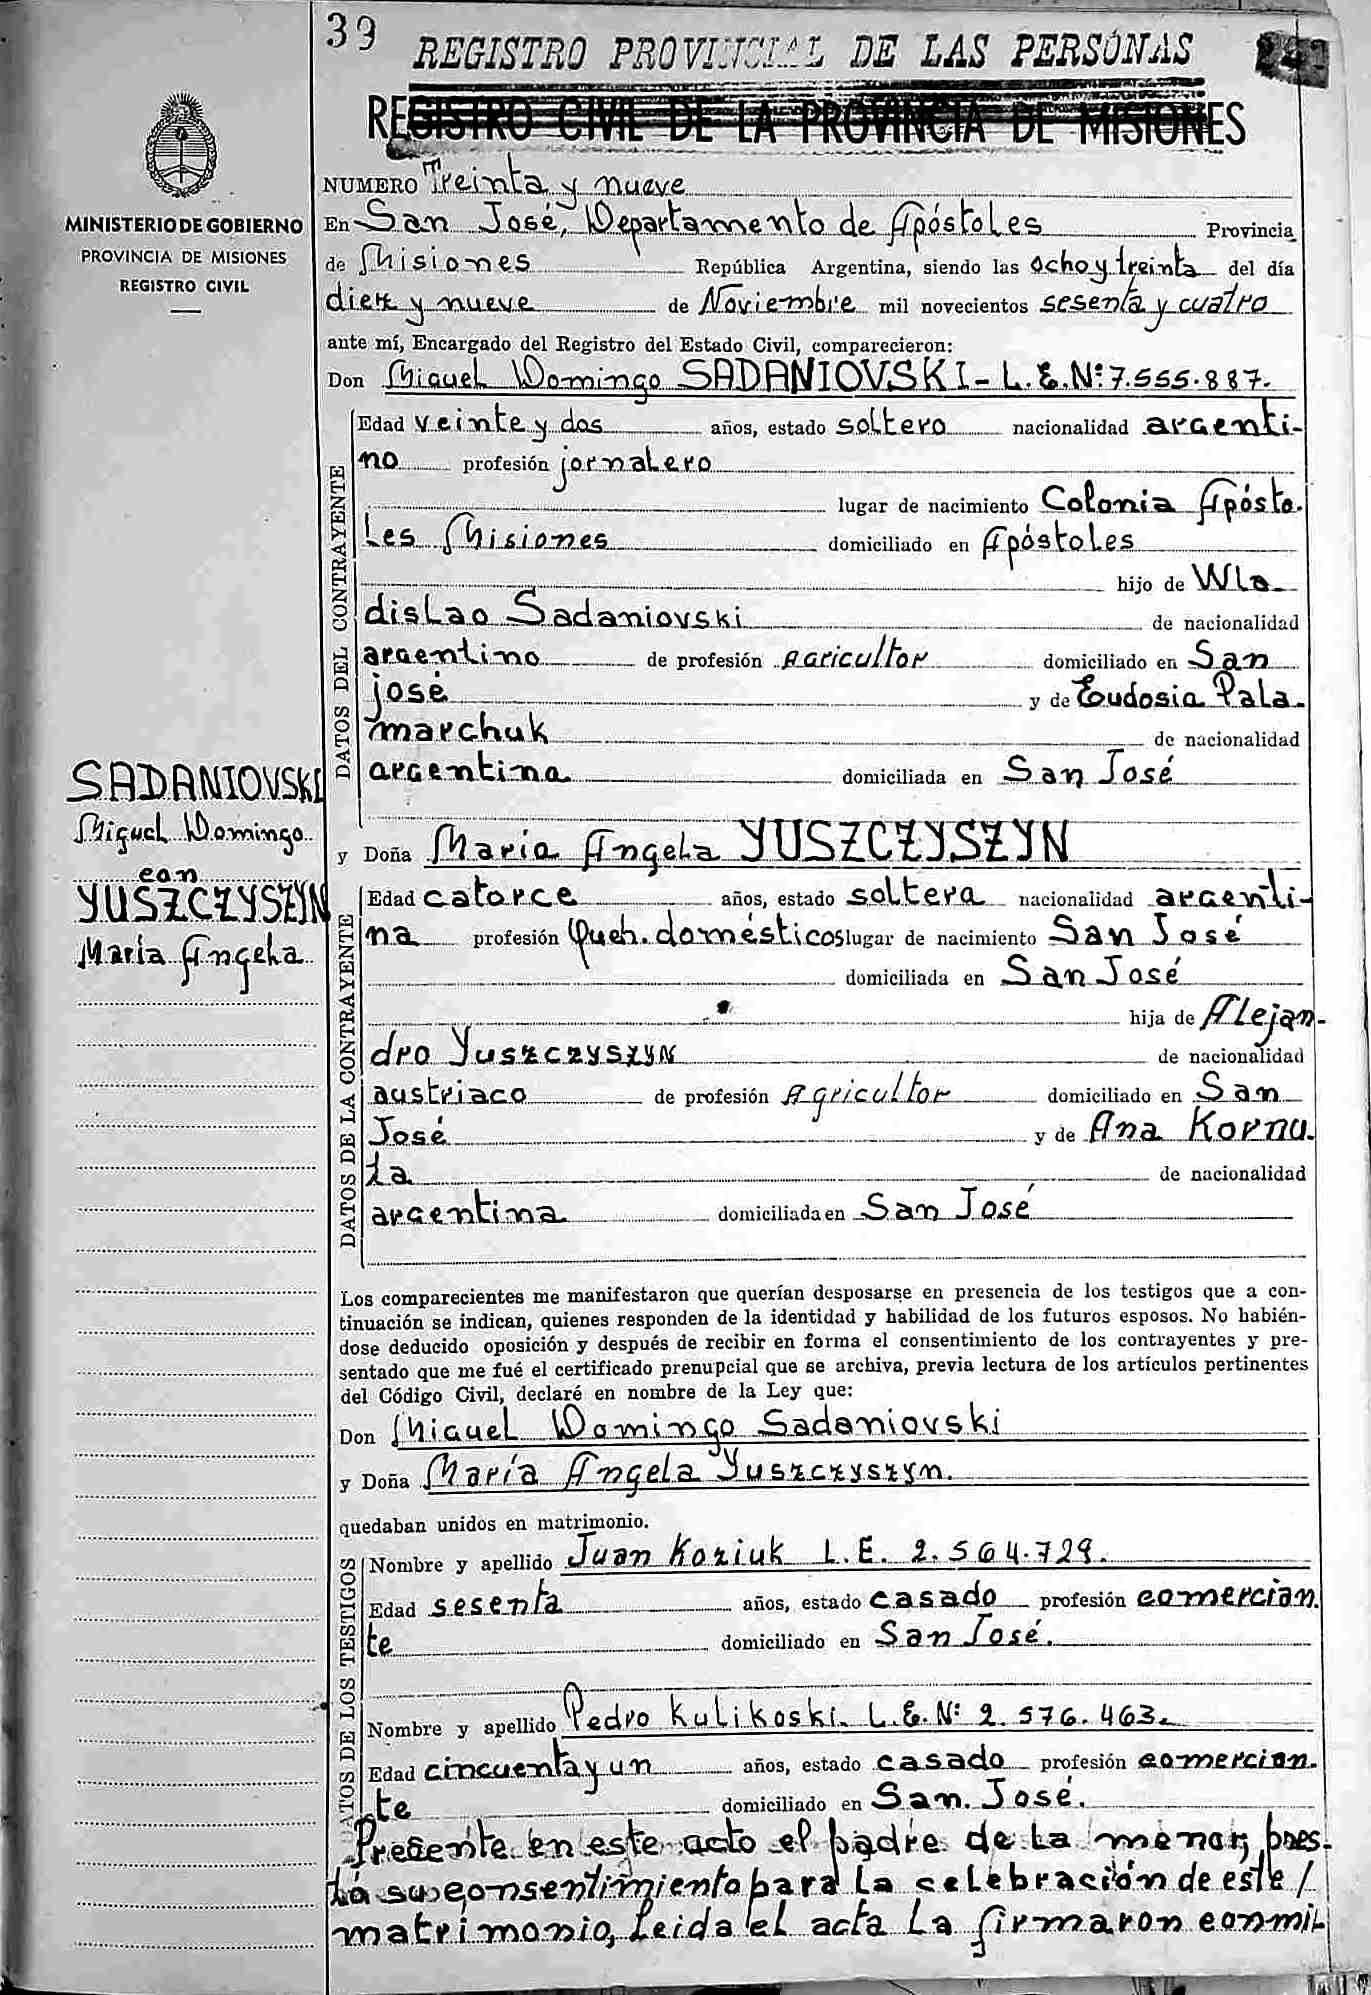 39
REGISTRO PROVINCIAL DE LAS PERSONAS
REGISTRO CIVIL DE LA PROVINCIA DE MISIONES
MINISTERIO DE GOBIERNO
PROVINCIA DE MISIONES
REGISTRO CIVIL
SADANIOVSKI
Miguel Domingo
con
YUSZCZYSZYN
María Angela
NUMERO Treinta y nueve
En San José, Departamento de Apóstoles Provincia
de Misiones República Argentina, siendo las ocho y treinta del día
diez y nueve de Noviembre mil novecientos sesenta y cuatro
ante mí, Encargado del Registro del Estado Civil, comparecieron:
Don Miguel Domingo SADANIOVSKI - L.E.Nº 7.555.887.
DATOS DEL CONTRAYENTE
Edad veinte y dos años, estado soltero nacionalidad argenti-
no profesión jornalero
lugar de nacimiento Colonia Apósto-
les Misiones domiciliado en Apóstoles
hijo de Wla-
dislao Sadaniovski de nacionalidad
argentino de profesión Agricultor domiciliado en San
josé y de Eudosia Pala-
marchuk de nacionalidad
argentina domiciliada en San José
y Doña María Angela YUSZCZYSZYN
DATOS DE LA CONTRAYENTE
Edad catorce años, estado soltera nacionalidad argenti-
na profesión Queh. domésticos lugar de nacimiento San José
domiciliada en San José
hija de Alejan-
dro Yuszczyszyn de nacionalidad
austriaco de profesión Agricultor domiciliado en San
José y de Ana Kornu-
ta de nacionalidad
argentina domiciliada en San José
Los comparecientes me manifestaron que querían desposarse en presencia de los testigos que a con-
tinuación se indican, quienes responden de la identidad y habilidad de los futuros esposos. No habién-
dose deducido oposición y después de recibir en forma el consentimiento de los contrayentes y pre-
sentado que me fué el certificado prenupcial que se archiva, previa lectura de los artículos pertinentes
del Código Civil, declaré en nombre de la Ley que:
Don Miguel Domingo Sadaniovski
y Doña María Angela Yuszczyszyn.
quedaban unidos en matrimonio.
DATOS DE LOS TESTIGOS
Nombre y apellido Juan Koziuk L.E. 2.564.729.
Edad sesenta años, estado casado profesión comercian-
te domiciliado en San José.
Nombre y apellido Pedro Kulikoski. L.E.Nº 2.576.463.
Edad cincuenta y un años, estado casado profesión comercian-
te domiciliado en San José.
Presente en este acto el padre de la menor, pres-
tó su consentimiento para la celebración de este /
matrimonio, Leida el acta la firmaron conmi-